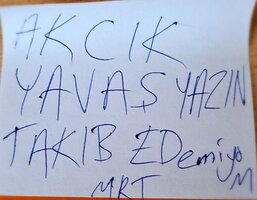 AKCIK
YAVAŞ YAZIN
TAKIB EDemiyo
MRT M